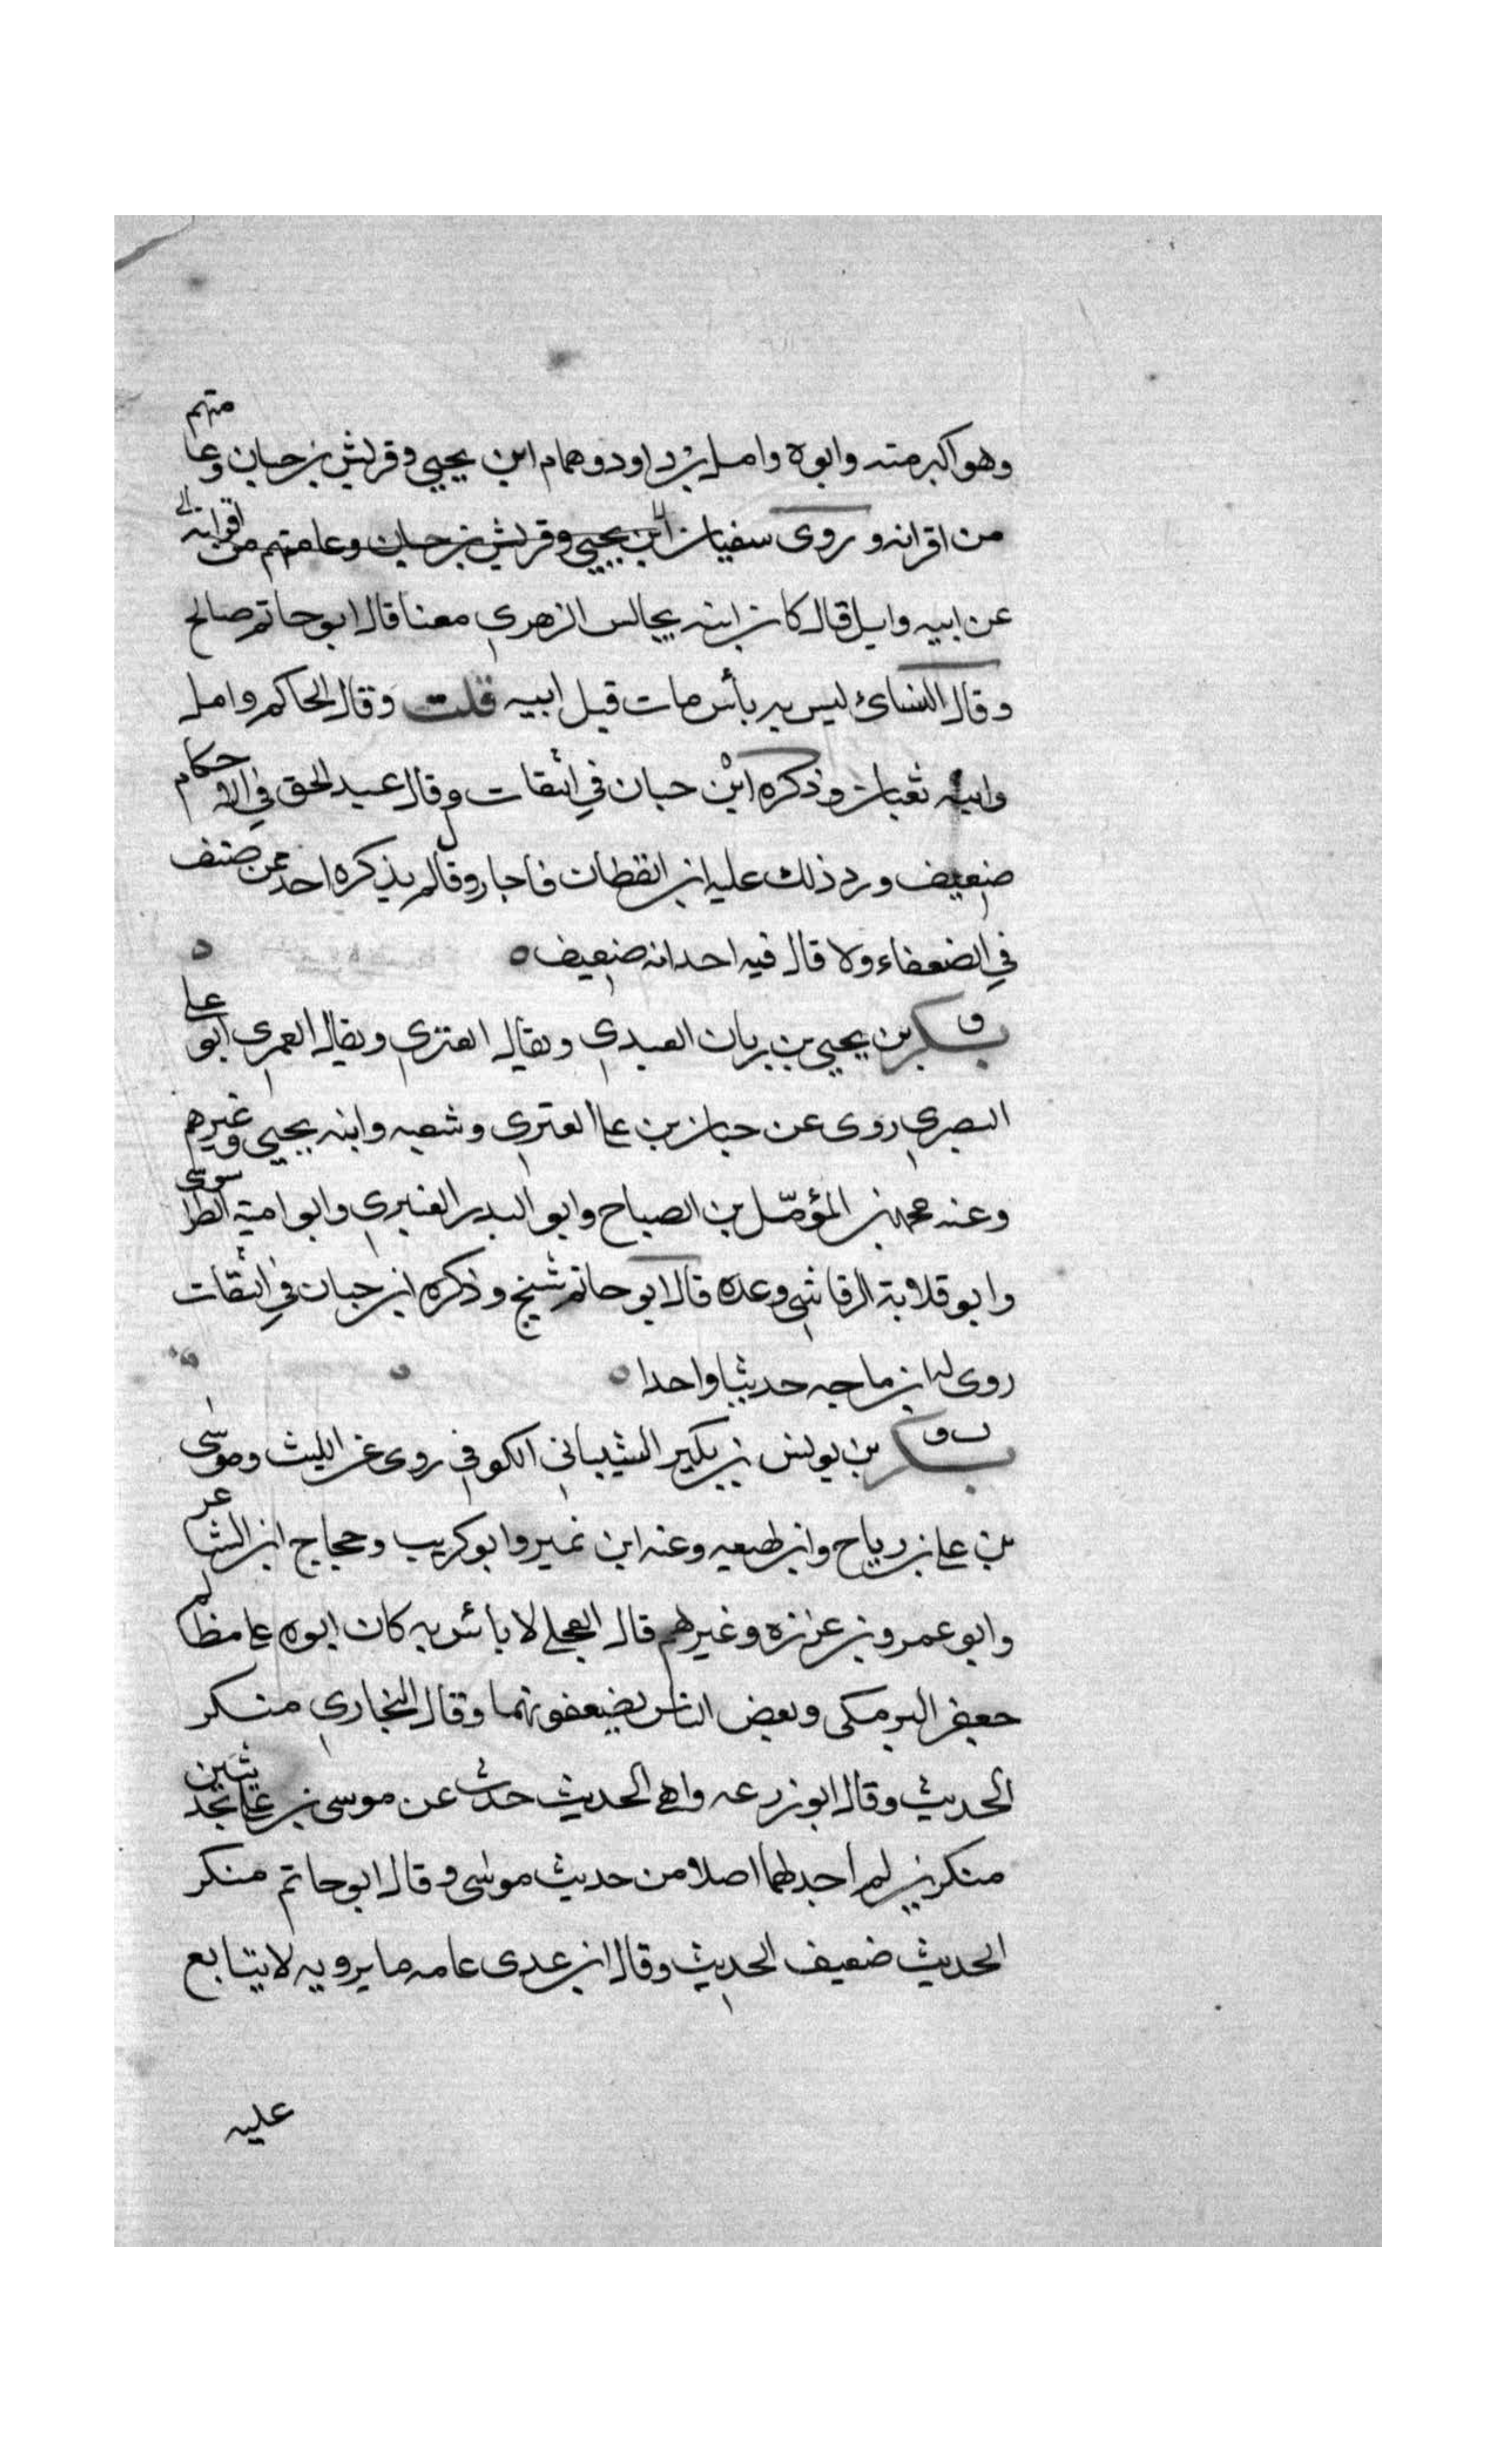 وهو اكبر منه وابوه وامل بن داود وهمام ابن يحيى وقريش بن حبان وعامتهم
من اقرانه وروى سفيان ابن يحيى وقريش بن حبان وعامتهم من اقرانه
عن ابيه وايل قال كان ابنه يجالس الزهري معنا قال ابو حاتم صالح
وقال النسائ ليس به بأس مات قبل ابيه قلت وقال الحاكم وامل
وابنه ثقبان وذكره ابن حبان في الثقات وقال عبد الحق في الاحكام
ضعيف ورد ذلك عليه ابن القطان فاجا روقال لم يذكره احد ممن صنف
في الضعفاء ولا قال فيه احد انه ضعيف ه
ق بكر بن يحيى بن زبان العبدي ويقال العنزي ويقال العمري ابو علي
البصري روى عن حبان بن علي العنزي وشعبه وابنه يحيى وغيرهم
وعنه محمد بن المؤمّل بن الصباح وابو البدر الغبري وابو امية الطرسوسي
وابو قلابة الرقاشي وعده قال ابو حاتم شيخ وذكره ابن حبان في الثقات
روى له ابن ماجه حديثا واحدا ه
ت ق بكر بن يونس بن بكير الشيباني الكوفي روى عن الليث وموسى
بن علي بن رباح وابن لهيعه وعنه ابن نمير وابو كريب وحجاج ابن الشاعر
وابو عمرو بن عزرزه وغيرهم قال العجلي لا بائس به كان ابوه على مظالم
جعفر البرمكى وبعض الناس يضعفونهما وقال البخاري منكر
الحديث وقال ابو زرعه واهي الحديث حدث عن موسى بن علي بحديثين
منكرين لم اجد لهما اصلا من حديث موسى وقال ابو حاتم منكر
الحديث ضعيف الحديث وقال ابن عدى عامه ما يرويه لا يتابع
عليه